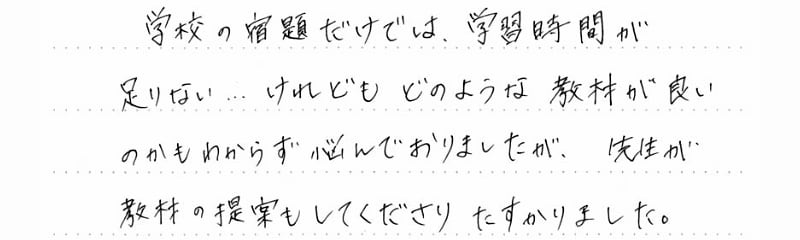 学校の宿題だけでは、学習時間が
足りない… けれども どのような 教材が良い
のかもわからず悩んでおりましたが、 先生が
教材の提案もしてくださり たすかりました。